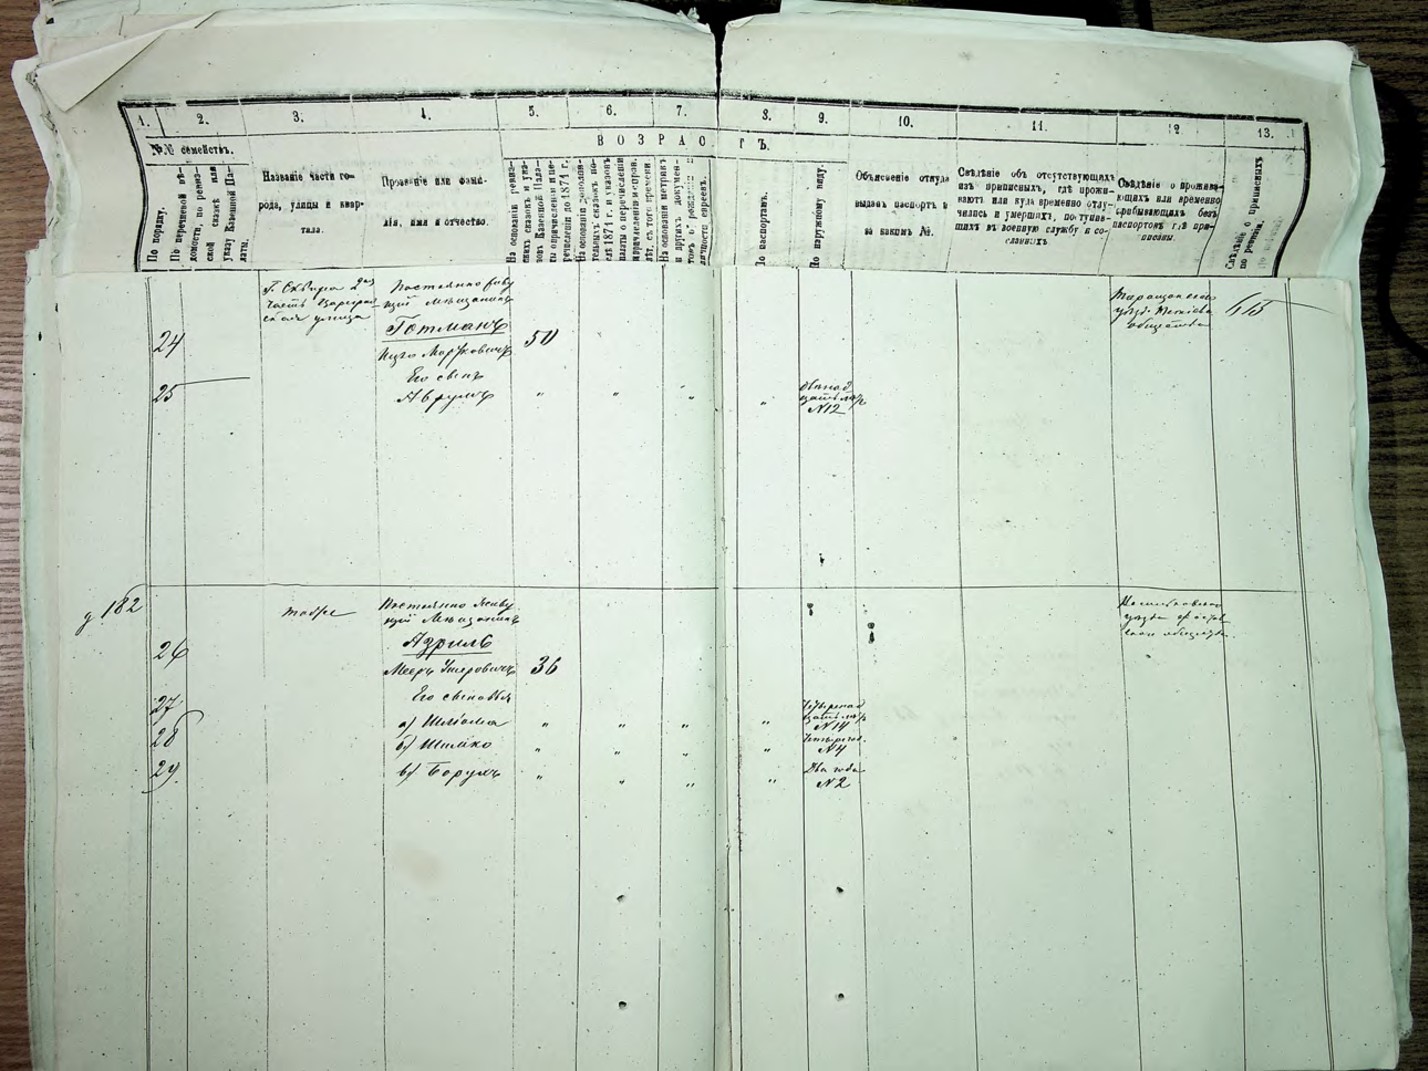 1. 2. 3. 4. 5. 6. 7. 8. 9. 10. 11. 12 13.
№№ семействъ.
По порядку.
По перечневой вѣ-
домости, по ревиз-
ской сказкѣ или
указу Казенной Па-
латы.
Названіе части го-
рода, улицы и квар-
тала.
Прозваніе или фами-
лія, имя и отчество.
ВОЗРАСТЪ.
На основаніи ревиз-
скихъ сказокъ и ука-
зовъ Казенной Пала-
ты о причисленіи и пе-
речисленіи до 1871 г.
На основаніи дополни-
тельныхъ сказокъ по-
слѣ 1871 г. и указовъ
палаты о перечисленіи
На основаніи метрикъ
и другихъ докумен-
товъ о рожденіи и
личности евреевъ.
По паспортамъ.
По наружному виду.
Объясненіе откуда
выданъ паспортъ и
за какимъ №.
Свѣдѣніе объ отсутствующихъ
изъ приписныхъ, гдѣ прожи-
ваютъ или куда временно отлу-
чились и умершихъ, поступив-
шихъ въ военную службу и со-
сланныхъ
Свѣдѣніе о прожива-
ющихъ или временно
прибывающихъ безъ
паспортовъ гдѣ при-
писаны.
Свѣдѣніе о приписныхъ
по ревизіи.
Г. Сквира 2я
часть
улица
Постоянно живу
щій Мѣщанинъ
Готманъ
24
Марковичъ
50
Его сынъ
25
Аврумъ
№12
Таращанскаго
общества
415
182
тоже
Постоянно живу
щій Мѣщанинъ
Азриль
26
Мееръ Ушеровичъ
36
Его сыновья
27
а) Шліома
№14
28
б) Шмилко
№4
29
в) Борухъ
Два года
№2
уѣзда